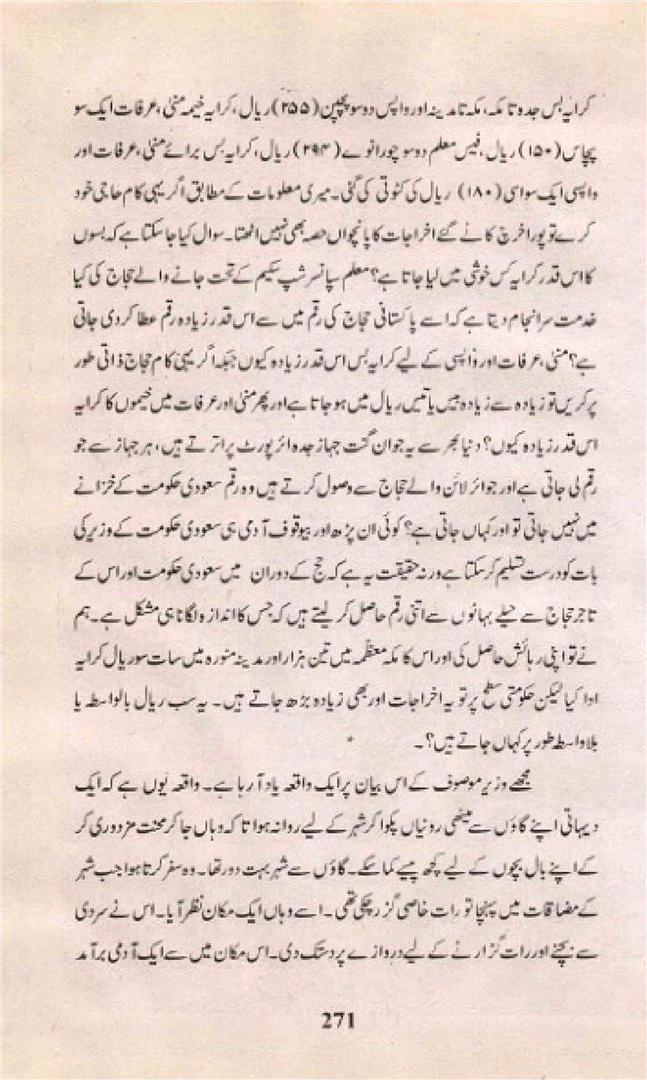 کرایہ بس جدہ تا مکہ، مکہ تا مدینہ اور واپس دو سو پچپن (۲۵۵) ریال، کرایہ خیمہ منیٰ، عرفات ایک سو
پچاس (۱۵۰) ریال، فیس معلم دو سو چورانوے (۲۹۴) ریال، کرایہ بس برائے منیٰ، عرفات اور
واپسی ایک سو اسی (۱۸۰) ریال کی کٹوتی کی گئی۔ میری معلومات کے مطابق اگر یہی کام حاجی خود
کرے تو پورا خرچ کاٹے گئے اخراجات کا پانچواں حصہ بھی نہیں اٹھتا۔ سوال کیا جا سکتا ہے کہ بسوں
کا اس قدر کرایہ کس خوشی میں لیا جاتا ہے؟ معلم سپانسر شپ سکیم کے تحت جانے والے حجاج کی کیا
خدمت سرانجام دیتا ہے کہ اسے پاکستانی حجاج کی رقم میں سے اس قدر زیادہ رقم عطا کر دی جاتی
ہے؟ منیٰ، عرفات اور واپسی کے لیے کرایہ بس اس قدر زیادہ کیوں جبکہ اگر یہی کام حجاج ذاتی طور
پر کریں تو زیادہ سے زیادہ بیس یا تیس ریال میں ہو جاتا ہے اور پھر منیٰ اور عرفات میں خیموں کا کرایہ
اس قدر زیادہ کیوں؟ دنیا بھر سے یہ جو ان گنت جہاز جدہ ائر پورٹ پر اترتے ہیں، ہر جہاز سے جو
رقم لی جاتی ہے اور جو ائر لائن والے حجاج سے وصول کرتے ہیں وہ رقم سعودی حکومت کے خزانے
میں نہیں جاتی تو اور کہاں جاتی ہے؟ کوئی ان پڑھ اور بیوقوف آدمی ہی سعودی حکومت کے وزیر کی
بات کو درست تسلیم کر سکتا ہے ورنہ حقیقت یہ ہے کہ حج کے دوران میں سعودی حکومت اور اس کے
تاجر حجاج سے حیلے بہانوں سے اتنی رقم حاصل کر لیتے ہیں کہ جس کا اندازہ لگانا ہی مشکل ہے۔ ہم
نے تو اپنی رہائش حاصل کی اور اس کا مکہ معظمہ میں تین ہزار اور مدینہ منورہ میں سات سو ریال کرایہ
ادا کیا لیکن حکومتی سطح پر تو یہ اخراجات اور بھی زیادہ بڑھ جاتے ہیں۔ یہ سب ریال بالواسطہ یا
بلاواسطہ طور پر کہاں جاتے ہیں؟۔
مجھے وزیر موصوف کے اس بیان پر ایک واقعہ یاد آ رہا ہے۔ واقعہ یوں ہے کہ ایک
دیہاتی اپنے گاؤں سے میٹھی روٹیاں پکوا کر شہر کے لیے روانہ ہوا تا کہ وہاں جا کر محنت مزدوری کر
کے اپنے بال بچوں کے لیے کچھ پیسے کما سکے۔ گاؤں سے شہر بہت دور تھا۔ وہ سفر کرتا ہوا جب شہر
کے مضافات میں پہنچا تو رات خاصی گزر چکی تھی۔ اسے وہاں ایک مکان نظر آیا۔ اس نے سردی
سے بچنے اور رات گزارنے کے لیے دروازے پر دستک دی۔ اس مکان میں سے ایک آدمی برآمد
271